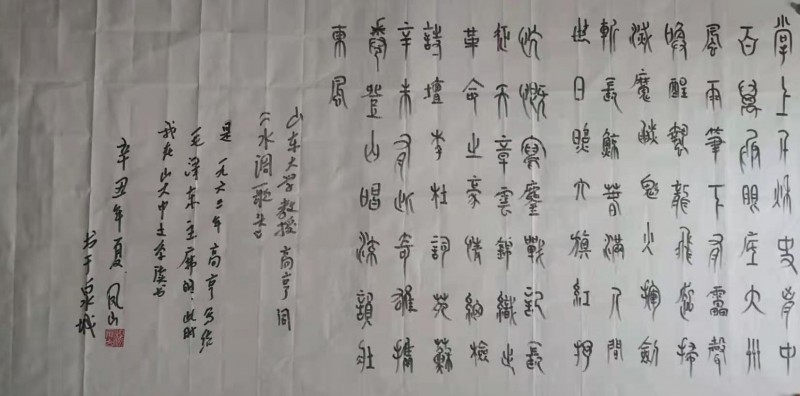 掌上千秋史胸中
百萬兵眼底六州
風雨筆下有靁聲
喚醒蟄龍飛起掃
滅魔燄魅火揮劍
斬長鯨春滿人間
世日照大旗紅抒
慷慨寫鏖戰記長
征天章雲錦織出
革命之豪情細檢
詩壇李杜詞苑蘇
辛未有此奇雄攜
卷登山唱流韻壯
東風
山东大学教授高亨
水调歌头
是一九六三年高亨写给
毛泽东主席的，此时
我在山大中文系读书
辛丑年夏 凤山
书于泉城